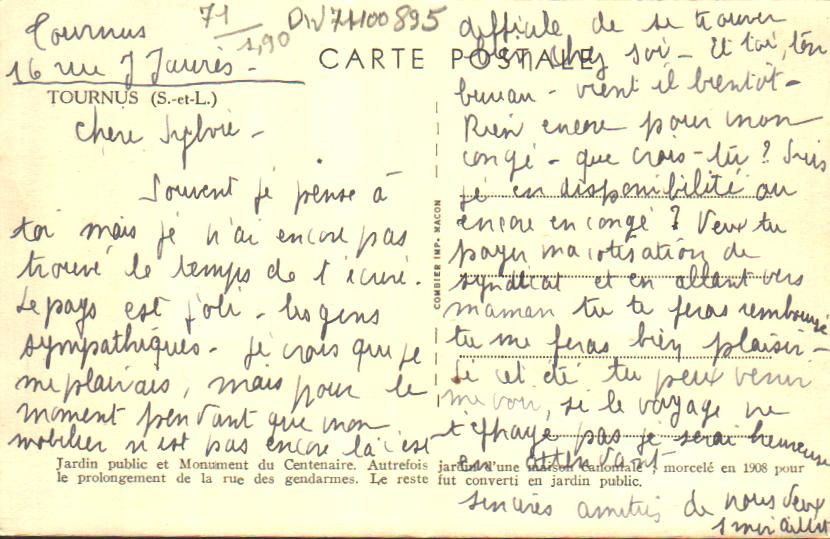 Tournus
71
1,90
DW71100895
16 rue J Jaurès -
CARTE POSTALE
TOURNUS (S.-et-L.)
Chère Sylvie -
Souvent je pense à
toi mais je n'ai encore pas
trouvé le temps de t'écrire.
Le pays est joli - les gens
sympathiques - je crois que je
me plairais, mais pour le
moment pendant que mon
mobilier n'est pas encore là c'est
COMBIER IMP. MACON
difficile de se trouver
bien chez soi - Et toi, ton
bureau - vient il bientôt -
Rien encore pour mon
congé - que crois-tu ? Suis
je en disponibilité ou
encore en congé ? Veux tu
payer ma cotisation de
syndicat et en allant vers
maman tu te feras rembourser
tu me feras bien plaisir -
Si cet été tu peux venir
me voir, si le voyage ne
t'effraye pas je serai heureuse
en attendant
sincères amitiés de nous deux
Jardin public et Monument du Centenaire. Autrefois jardin d'une maison canoniale, morcelé en 1908 pour
le prolongement de la rue des gendarmes. Le reste fut converti en jardin public.